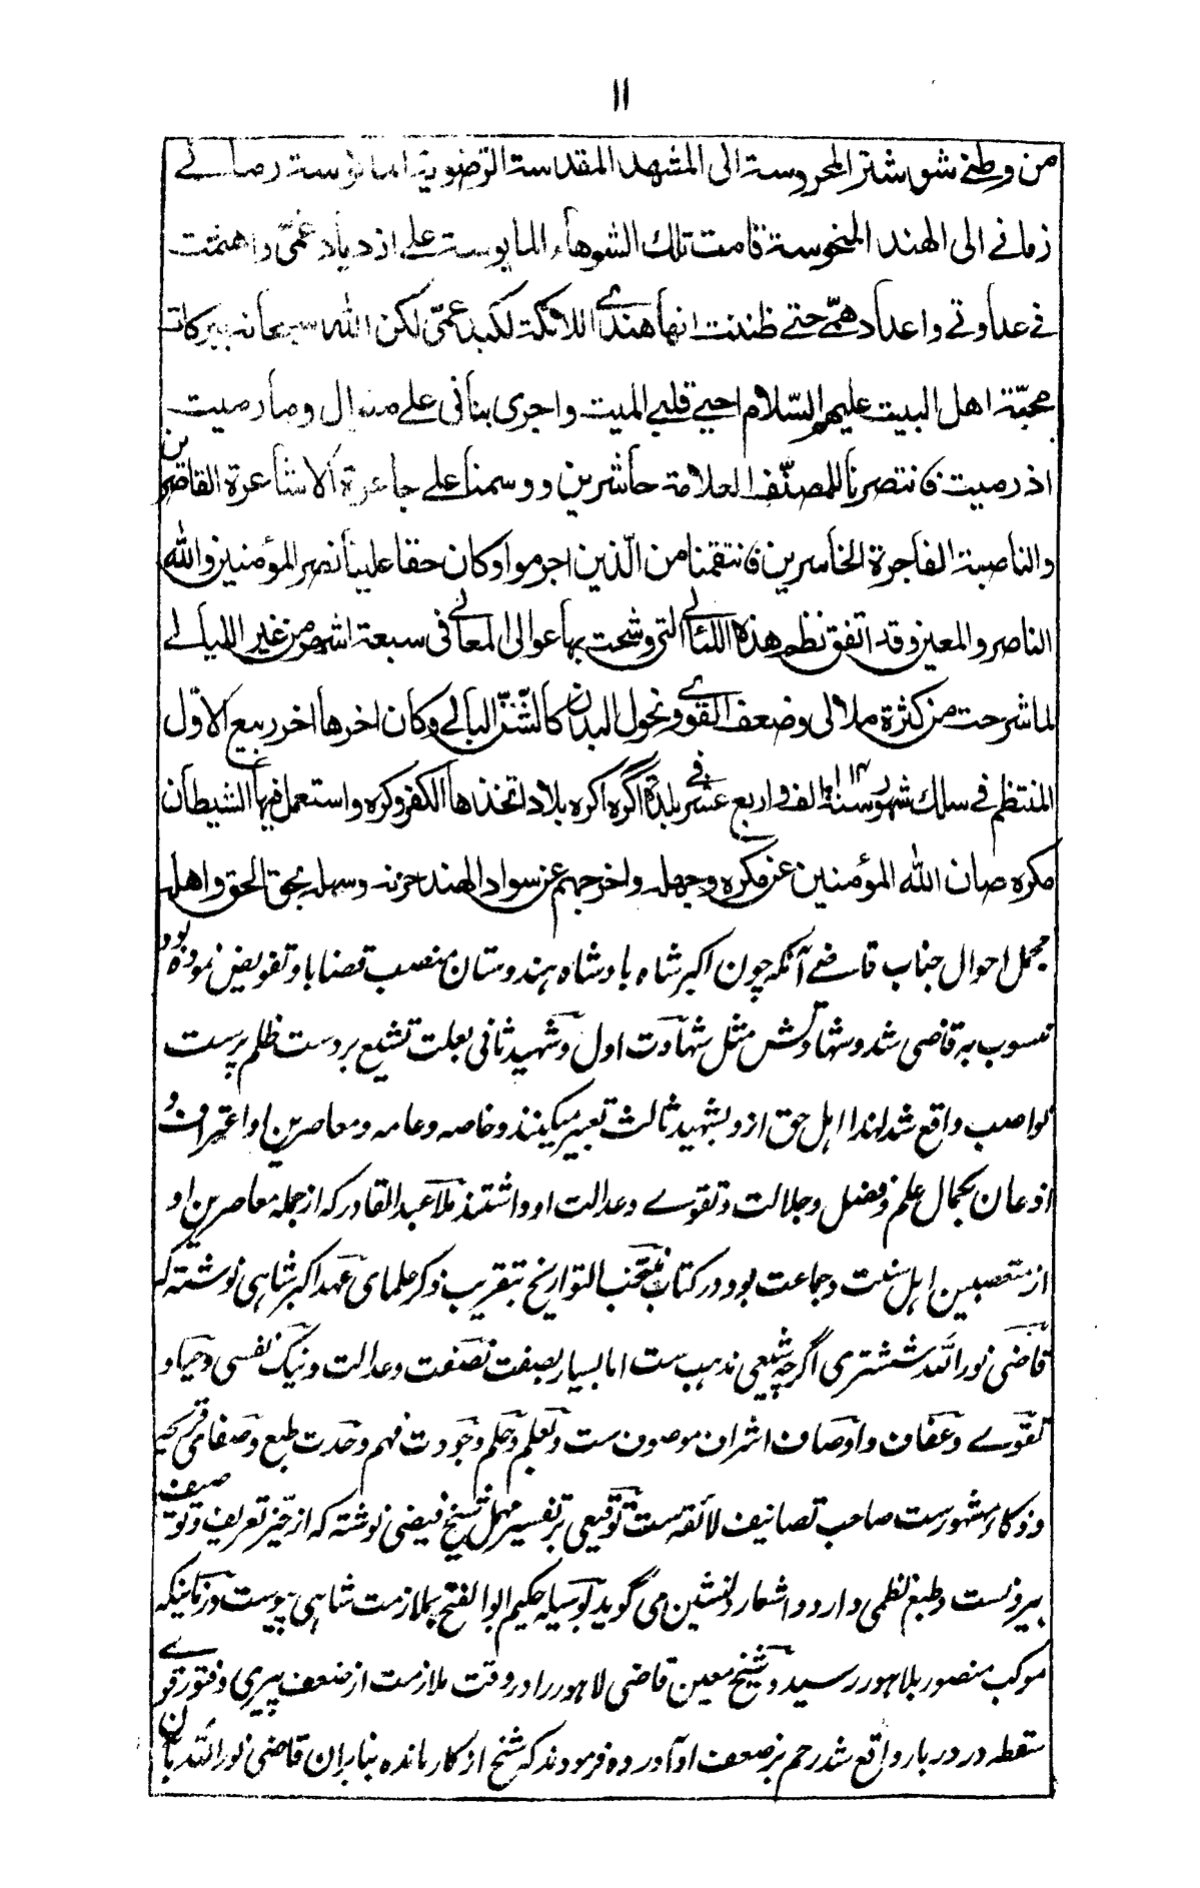 ۱۱
من وطنے شوشتر المحروسة الى المشهد المقدسة الرضوية المانوسة رمانے
زمانے الى الهند المنحوسة قامت تلك الشوهاء المايوسة علے ازدياد غمّى واهتمّت
فے عداوتے واعداد همّے حتے ظننت انها هندے اللائكة لكبد عمّى لكن الله سبحانه ببركات
محبّة اهل البيت عليهم السّلام احيے قلبے الميت واجرى بنانى علے منوال وما رميت
اذ رميت فانتصرنا للمصنّف العلامة حاشرين ووسمنا علے جاعرة الاشاعرة القاصرين
والناصبة الفاجرة الخاسرين فانتقمنا من الّذين اجرموا وكان حقا علينا نصر المؤمنين والله
الناصر والمعين وقد اتفق نظم هذه اللئالے التى وشحت بها عوالى المعانى فى سبعة اشهر من غير الليالے
لما شرحت من كثرة ملالى وضعف القوے ونحول البدن كالشّنّ البالے وكان اخرها اخر ربيع الاوّل
المنتظم فے سلك شهور سنة ۱۰۱۴ الف واربع عشر فے بلدة اگره اكره بلاد اتخذها الكفر وكره واستعمل فيها الشيطان
مكره صان الله المؤمنين عن مكره وجهله واخرجهم عن سواد الهند حزنه وسهله بحق الحق واهله
مجمل احوال جناب قاضے آنکه چون اکبر شاه بادشاه هندوستان منصب قضا باو تفویض نموده بود
منسوب به قاضی شد و شهادتش مثل شهادت اول و شهید ثانی بعلت تشیع بر دست ظلم پرست
نواصب واقع شد لهذا اهل حق ازو بشهید ثالث تعبیر میکنند و خاصه و عامه و معاصرین او اعتراف و
اذعان بکمال علم و فضل و جلالت و تقوے و عدالت او داشتند ملا عبدالقادر که از جمله معاصرین او
از متعصبین اهل سنت و جماعت بود در کتاب منتخب التواریخ بتقریب ذکر علمای عهد اکبر شاهی نوشته که
قاضی نورالله ششتری اگرچه شیعی مذهب ست اما بسیار بصفت نصفت و عدالت و نیک نفسی و حیا و
تقوے و عفاف و اوصاف اشراف موصوف ست و بعلم و حلم و جودت فهم و حدت طبع و صفای قریحه
و ذکاء مشهورست صاحب تصانیف لائقه ست توقیعی بر تفسیر مهمل شیخ فیضی نوشته که از حیز تعریف و توصیف
بیرونست و طبع نظمی دارد و اشعار دلنشین می گوید بوسیله حکیم ابو الفتح بملازمت شاهی پیوست و زمانیکه
موکب منصور بلاهور رسید و شیخ معین قاضی لاهور را در وقت ملازمت از ضعف پیری و فتور قوے
سقطه در دربار واقع شد رحم بر ضعف او آورده فرمودند که شیخ از کار مانده بنابران قاضی نورالله بآن